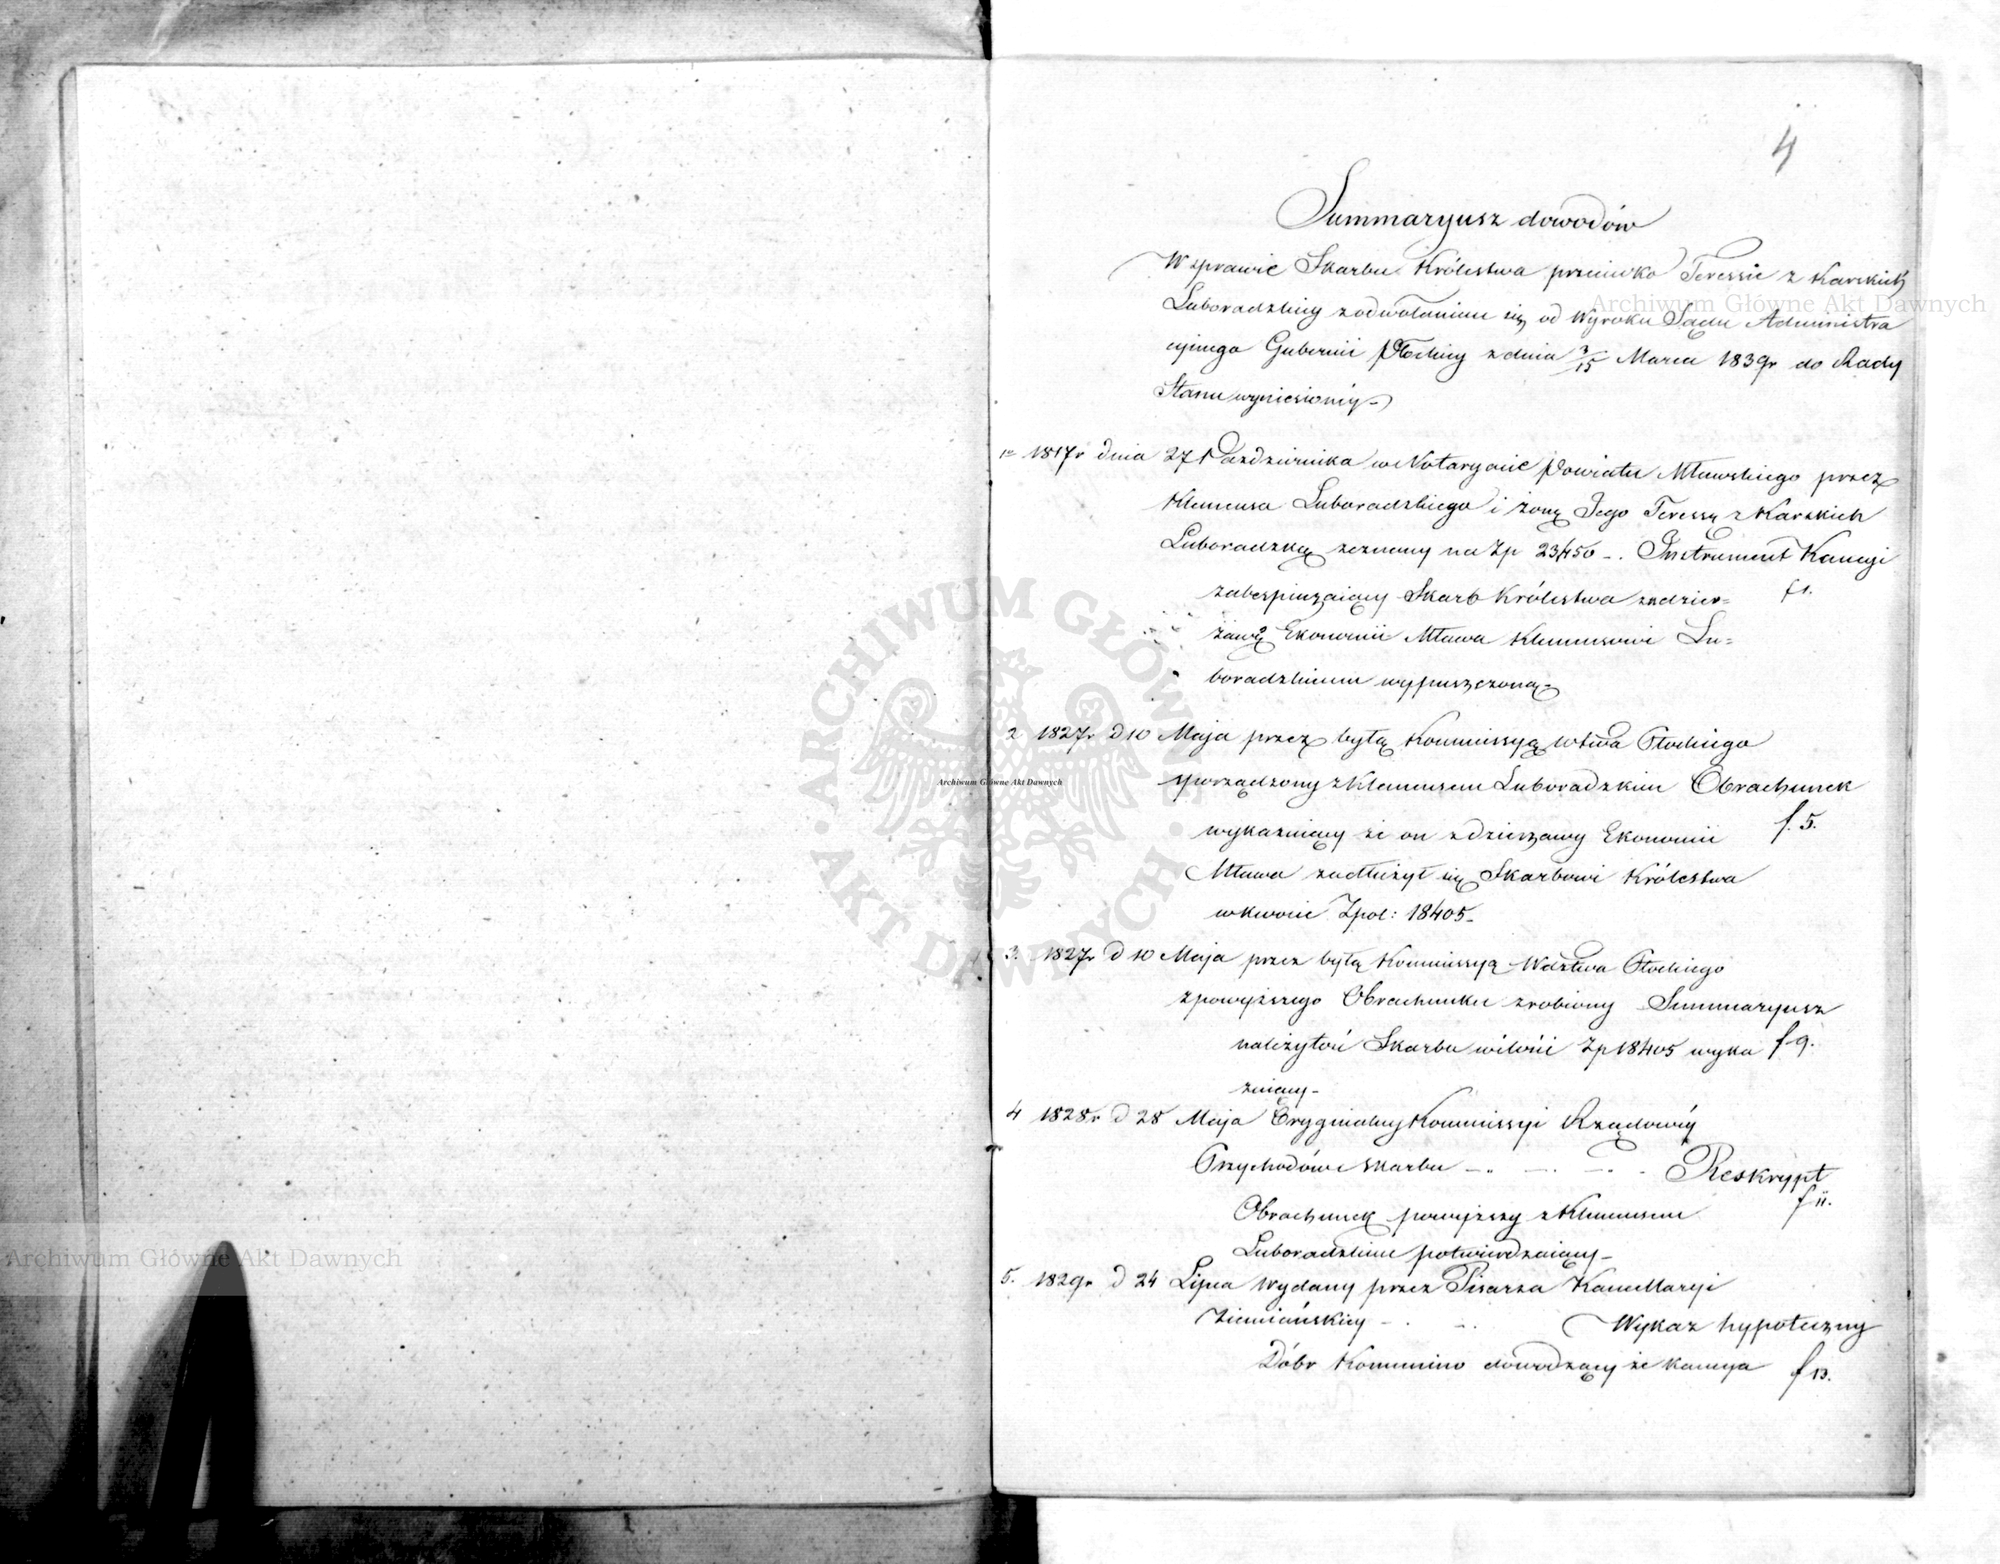 4
Summaryusz dowodów
W sprawie Skarbu Królestwa przeciwko Teressie z Karskich
Luboradzkiey z odwołaniem się od Wyroku Sądu Administra
cyinego Gubernii Płockiey z dnia 3/15 Marca 1839r do Rady
Stanu wyniesioney
1o 1817r dnia 27 Października w Notaryacie Powiatu Mławskiego przez
Klemensa Luboradzkiego i żonę Jego Teressę z Karskich
Luboradzką zeznany na Zp 23,450 -. Instrument Kaucyi
zabespieczaiący Skarb Królestwa z dzier= f 1.
żawę Ekonomii Mława Klemensowi Lu=
boradzkiemu wypuszczoną
2 1827r d 10 Maja przez byłą Kommissyą Wtwa Płockiego
sporządzony z Klemensem Luboradzkim Obrachunek
wykazuiący że on z dzierzawy Ekonomii f. 5.
Mława zadłużył się Skarbowi Królestwa
w kwocie Zpol: 18405-
3. 1827r d 10 Maja przez byłą Kommissyą Wdztwa Płockiego
z powyższego Obrachunku zrobiony Summaryusz
należytość Skarbu w ilości Zp 18405 wyka f 9.
zuiący-
4 1828r d 28 Maja Oryginalny Kommissyi Rządowéy
Przychodów i Skarbu -. -. -. Reskrypt
f 11.
Obrachunek powyższy z Klemensem
Luboradzkim potwierdzaiący-
5. 1829r d 24 Lipca Wydany przez Pisarza Kancellaryi
Ziemiańskiey -. -. Wykaz hypoteczny
Dóbr Kommino dowodzący że kaucya f 13.
Archiwum Główne Akt Dawnych
Archiwum Główne Akt Dawnych
Archiwum Główne Akt Dawnych
ARCHIWUM GŁÓWNE AKT DAWNYCH